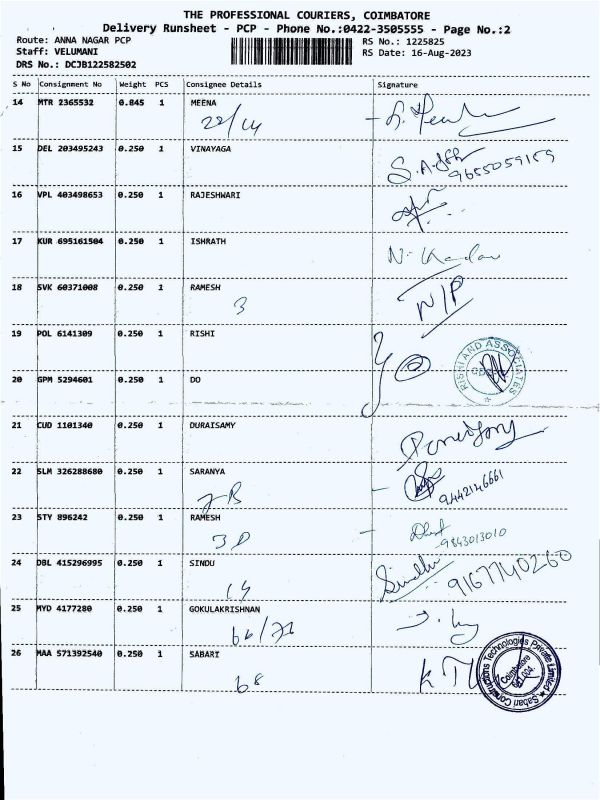 THE PROFESSIONAL COURIERS, COIMBATORE
Delivery Runsheet - PCP - Phone No.:0422-3505555 - Page No.:2
Route: ANNA NAGAR PCP RS No.: 1225825
Staff: VELUMANI RS Date: 16-Aug-2023
DRS No.: DCJB122582502
S No Consignment No Weight PCS Consignee Details Signature
14 MTR 2365532 0.845 1 MEENA
22/14
15 DEL 203495243 0.250 1 VINAYAGA
9655059159
16 VPL 403498653 0.250 1 RAJESHWARI
17 KUR 695161504 0.250 1 ISHRATH
18 SVK 60371008 0.250 1 RAMESH
3 N/P
19 POL 6141309 0.250 1 RISHI
RISHI AND ASSOCIATES
20 GPM 5294601 0.250 1 DO
21 CUD 1101340 0.250 1 DURAISAMY
22 SLM 326288680 0.250 1 SARANYA
9442146661
23 STY 896242 0.250 1 RAMESH
9843013010
24 DBL 415296995 0.250 1 SINDU
Sindhu 9167740260
25 MYD 4177280 0.250 1 GOKULAKRISHNAN
66/71
26 MAA 571392540 0.250 1 SABARI
68
Sabari Constructions Technologies Private Limited
Coimbatore